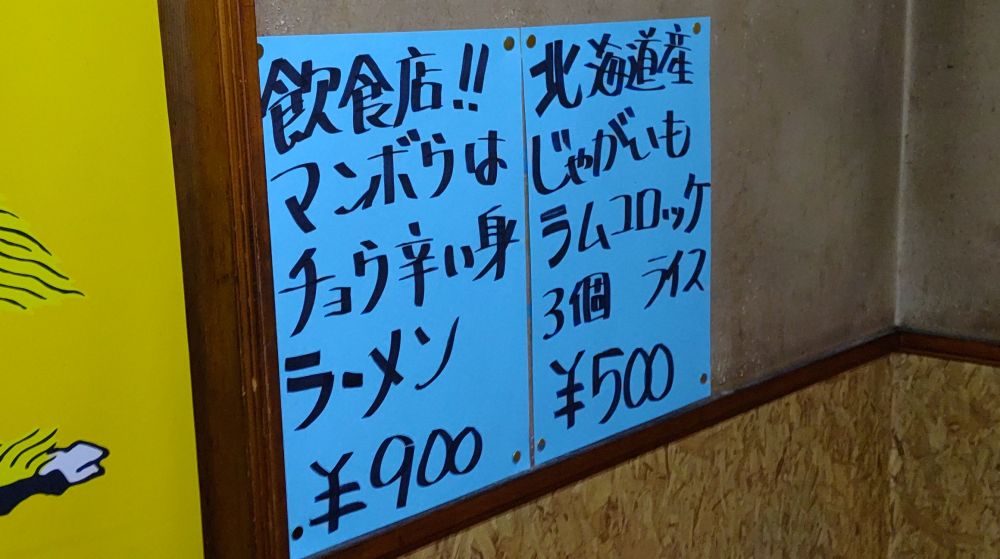 飲食店!!
マンボウは
チョウ辛い身
ラーメン
¥900
北海道産
じゃがいも
ラムコロッケ
3個 ライス
¥500